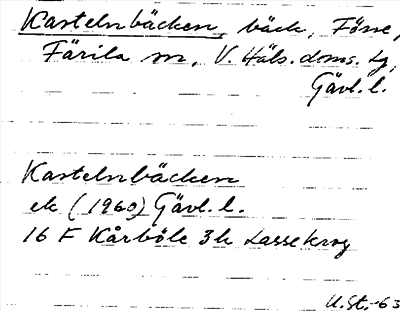 Kartelnbäcken, bäck, Förse,
Färila sn, V. Häls. doms. lg,
Gävl. l.
Kartelnbäcken
ek (1960) Gävl. l.
16 F Kårböle 3h Lassekrog
U. St. -63